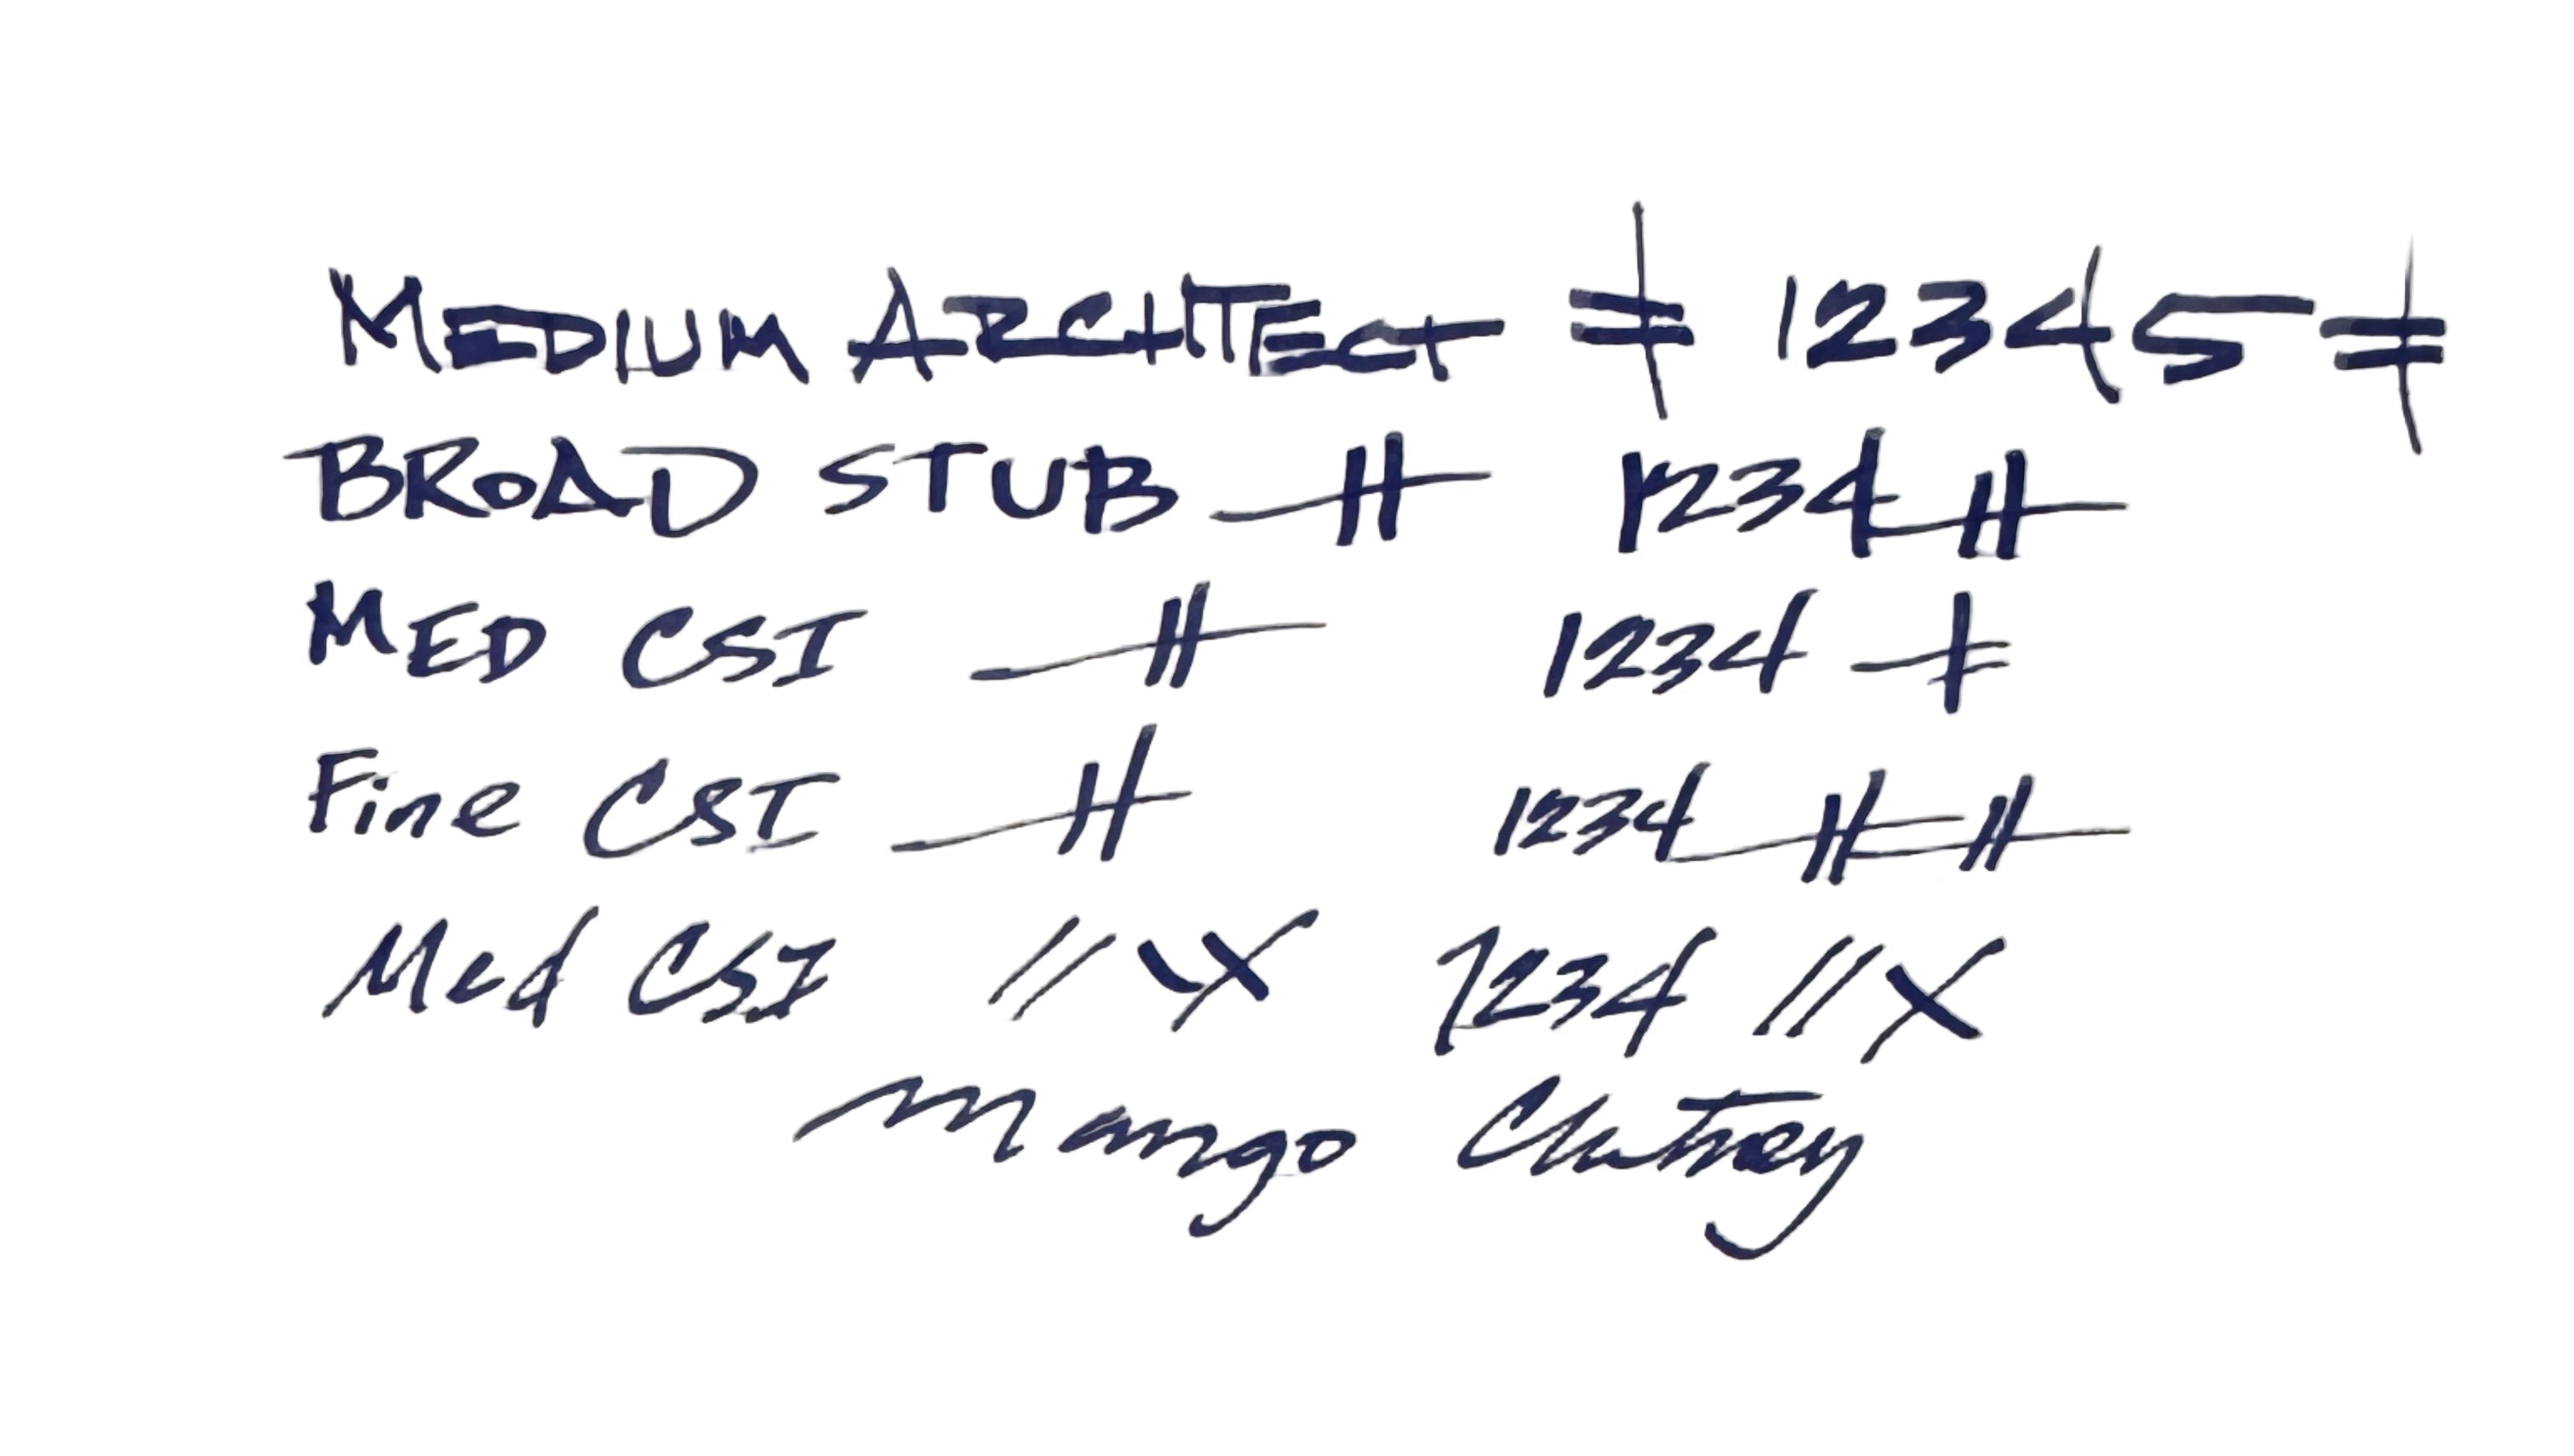 MEDIUM ARCHITECT ≠ 12345 ≠
BROAD STUB 1234
MED CSI 1234
Fine CSI 1234
Med CSI // X 1234 // X
Mango Chutney